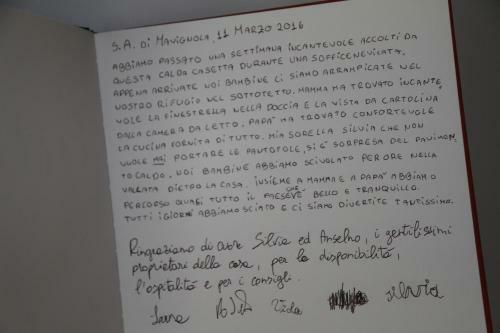 S. A. DI MAVIGNOLA, 11 MARZO 2016
ABBIAMO PASSATO UNA SETTIMANA INCANTEVOLE ACCOLTI DA
QUESTA CALDA CASETTA DURANTE UNA SOFFICE NEVICATA.
APPENA ARRIVATE NOI BAMBINE CI SIAMO ARRAMPICATE NEL
NOSTRO RIFUGIO NEL SOTTOTETTO. MAMMA HA TROVATO INCANTE
VOLE LA FINESTRELLA NELLA DOCCIA E LA VISTA DA CARTOLINA
DALLA CAMERA DA LETTO. PAPA' HA TROVATO CONFORTEVOLE
LA CUCINA FORNITA DI TUTTO. MIA SORELLA SILVIA CHE NON
VUOLE MAI PORTARE LE PANTOFOLE, SI E' SORPRESA DEL PAVIMEN
TO CALDO. NOI BAMBINE ABBIAMO SCIVOLATO PER ORE NELLA
VALLATA DIETRO LA CASA. INSIEME A MAMMA E A PAPA' ABBIAMO
PERCORSO QUASI TUTTO IL PAESE CHE E' BELLO E TRANQUILLO.
TUTTI I GIORNI ABBIAMO SCIATO E CI SIAMO DIVERTITE TANTISSIMO.
Ringraziamo di cuore Silvia ed Anselmo, i gentilissimi
proprietari della casa, per la disponibilità,
l'ospitalità e per i consigli.
silvia